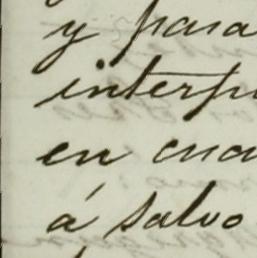 y para
interp
en cua
á salvo